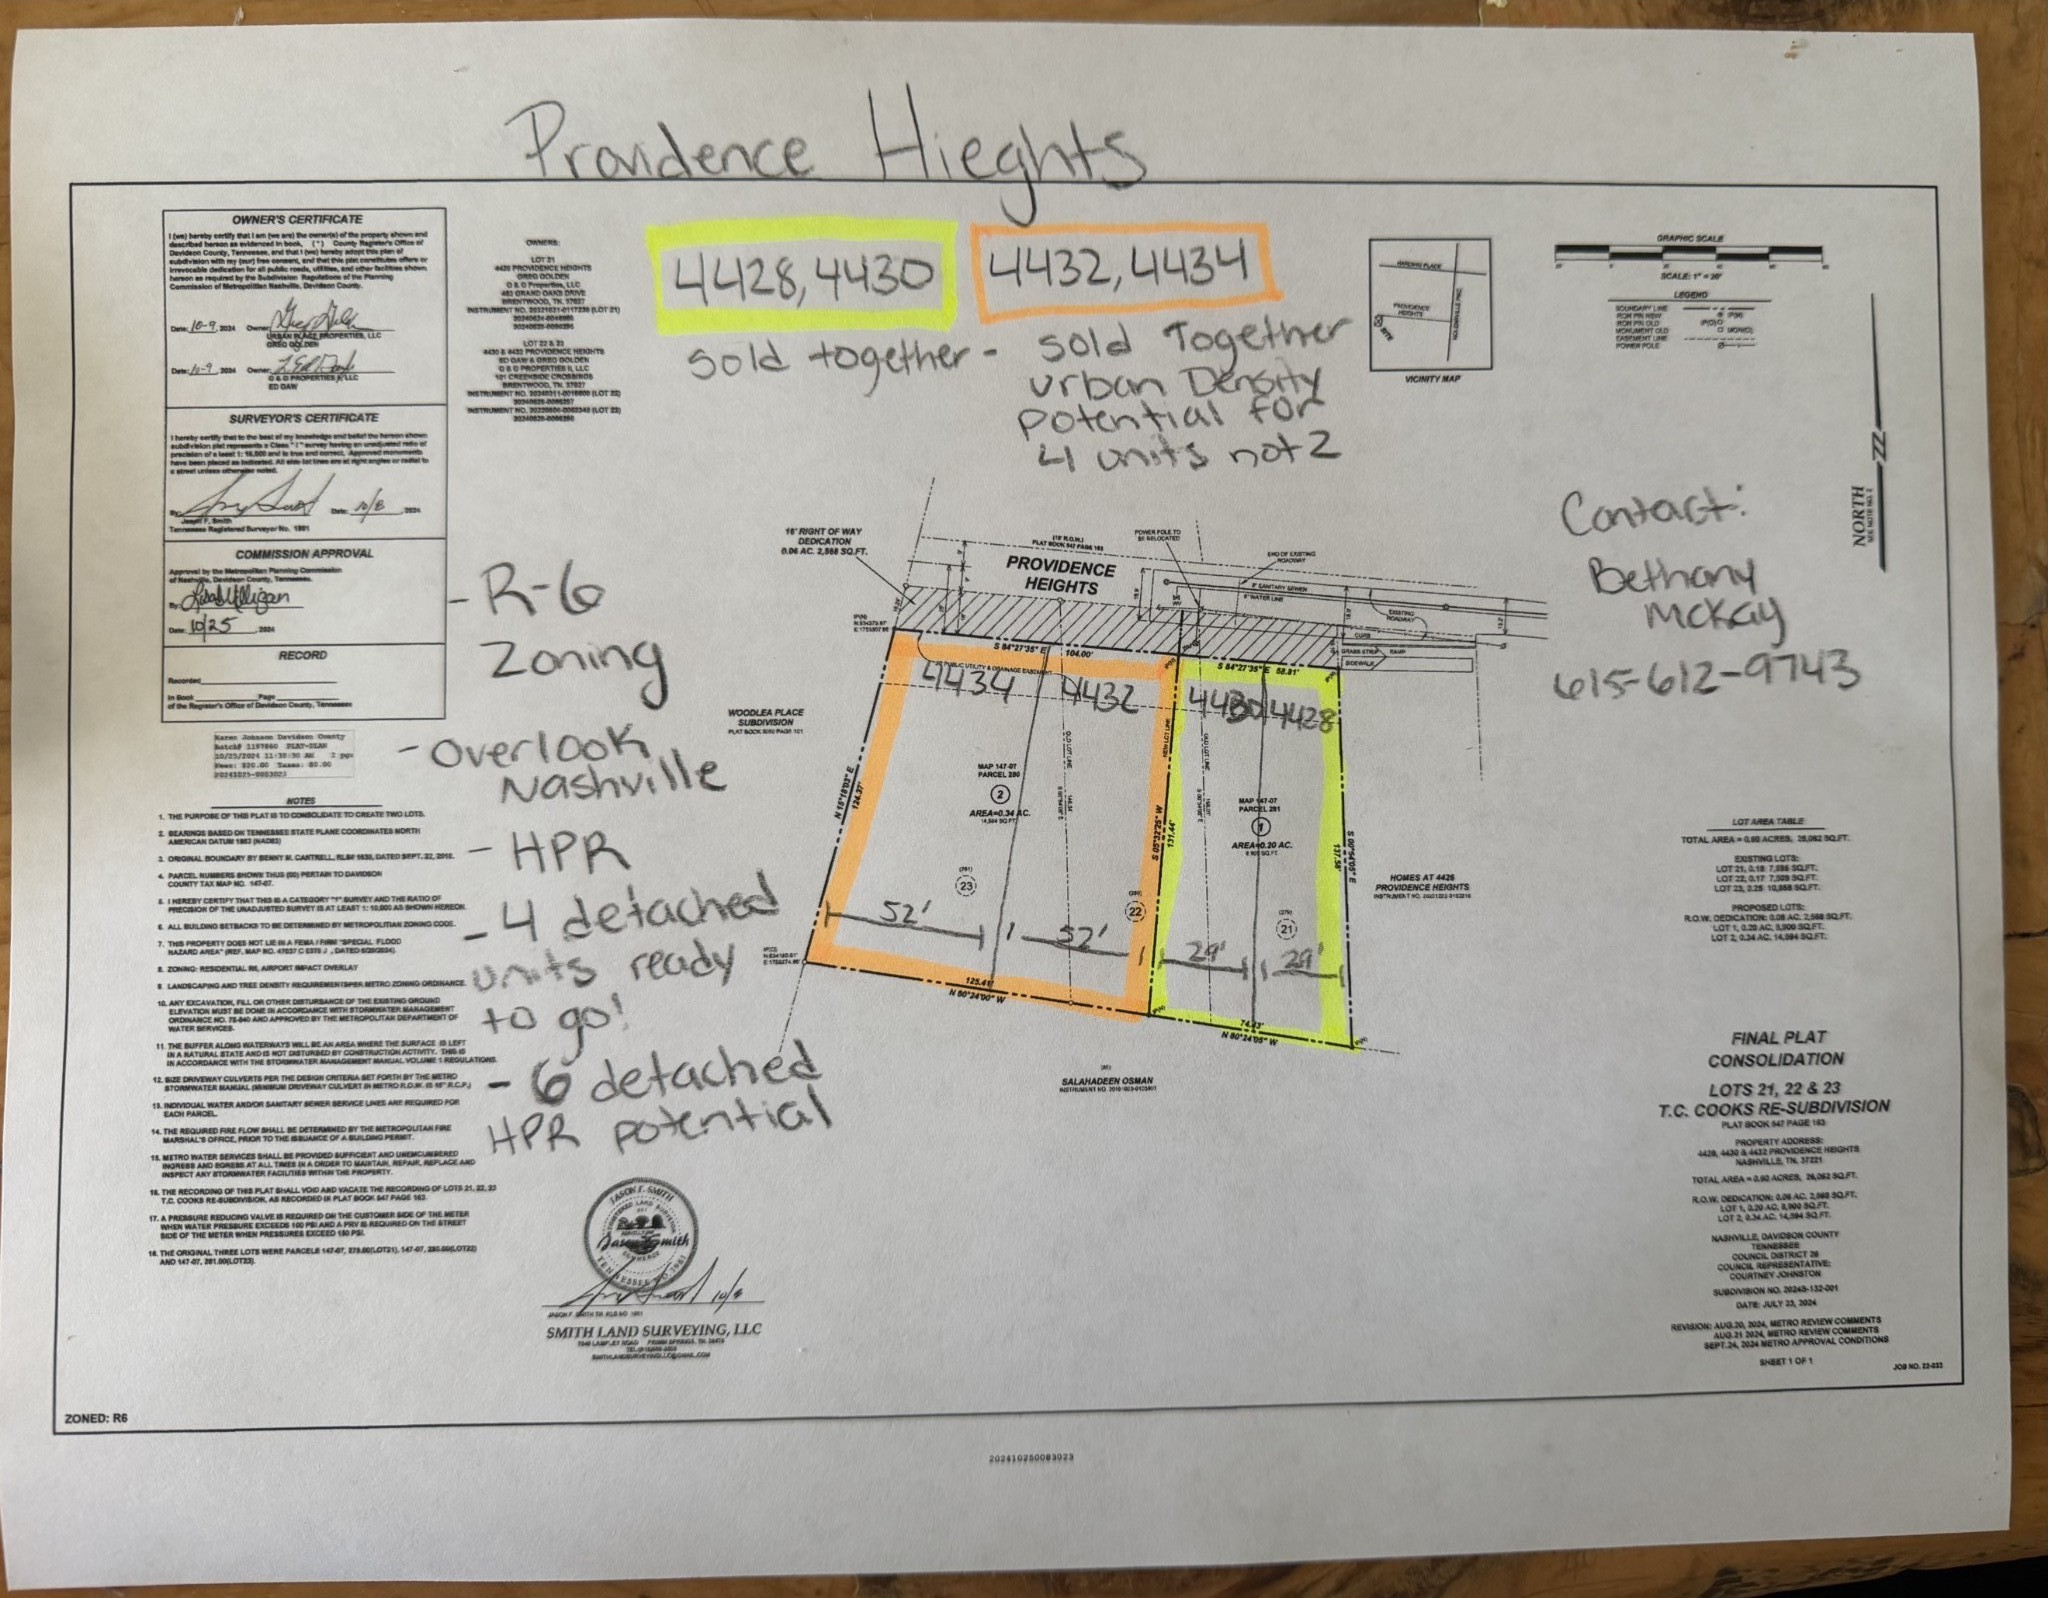 Providence Hieghts
OWNER'S CERTIFICATE
I (we) hereby certify that I am (we are) the owner(s) of the property shown and
described hereon as evidenced in book, ( * ) County Register's Office of
Davidson County, Tennessee, and that I (we) hereby adopt this plan of
subdivision with my (our) free consent, and that this plat constitutes offers or
irrevocable dedication for all public roads, utilities, and other facilities shown
hereon as required by the Subdivision Regulations of the Planning
Commission of Metropolitan Nashville, Davidson County.
Date: 10-9, 2024 Owner:
URBAN PLACE PROPERTIES, LLC
GREG GOLDEN
Date: 10-9 2024 Owner:
ED GAW
SURVEYOR'S CERTIFICATE
I hereby certify that to the best of my knowledge and belief the hereon shown
subdivision plat represents a Class "1" survey having an unadjusted ratio of
precision of a least 1: 10,000 and is true and correct. Approved monuments
have been placed as indicated. All side lot lines are at right angles or radial to
a street unless otherwise noted.
By: Date: 10/8 , 2024
Jason F. Smith
Tennessee Registered Surveyor No.
COMMISSION APPROVAL
Approved by the Metropolitan Planning Commission
of Nashville, Davidson County, Tennessee.
By:
Date: 10/25 , 2024
RECORD
Recorded
In Book Page
of the Register's Office of Davidson County, Tennessee
Karen Johnson Davidson County
Batch# 1197860 PLAT-PLAN
10/25/2024 11:30:30 AM 2 pgs
Fees: $20.00 Taxes: $0.00
20241025-0083023
NOTES
1. THE PURPOSE OF THIS PLAT IS TO CONSOLIDATE TO CREATE TWO LOTS.
2. BEARINGS BASED ON TENNESSEE STATE PLANE COORDINATES NORTH
AMERICAN DATUM 1983 (NAD83)
3. ORIGINAL BOUNDARY BY BENNY M. CANTRELL, RLS# 1630, DATED SEPT. 22, 2018.
4. PARCEL NUMBERS SHOWN THUS (00) PERTAIN TO DAVIDSON
COUNTY TAX MAP NO. 147-07.
5. I HEREBY CERTIFY THAT THIS IS A CATEGORY "1" SURVEY AND THE RATIO OF
PRECISION OF THE UNADJUSTED SURVEY IS AT LEAST 1: 10,000 AS SHOWN HEREON.
6. ALL BUILDING SETBACKS TO BE DETERMINED BY METROPOLITAN ZONING CODE.
7. THIS PROPERTY DOES NOT LIE IN A FEMA / FIRM "SPECIAL FLOOD
HAZARD AREA"
8. ZONING: RESIDENTIAL R6, AIRPORT IMPACT OVERLAY
9. LANDSCAPING AND TREE DENSITY REQUIREMENTSPER METRO ZONING ORDINANCE.
10. ANY EXCAVATION, FILL OR OTHER DISTURBANCE OF THE EXISTING GROUND
ELEVATION MUST BE DONE IN ACCORDANCE WITH STORMWATER MANAGEMENT
ORDINANCE NO. 78-840 AND APPROVED BY THE METROPOLITAN DEPARTMENT OF
WATER SERVICES.
11. THE BUFFER ALONG WATERWAYS WILL BE AN AREA WHERE THE SURFACE IS LEFT
IN A NATURAL STATE AND IS NOT DISTURBED BY CONSTRUCTION ACTIVITY. THIS IS
IN ACCORDANCE WITH THE STORMWATER MANAGEMENT MANUAL VOLUME 1 REGULATIONS.
12. SIZE DRIVEWAY CULVERTS PER THE DESIGN CRITERIA SET FORTH BY THE METRO
STORMWATER MANUAL (MINIMUM DRIVEWAY CULVERT IN METRO R.O.W. IS 15" R.C.P.)
13. INDIVIDUAL WATER AND/OR SANITARY SEWER SERVICE LINES ARE REQUIRED FOR
EACH PARCEL.
14. THE REQUIRED FIRE FLOW SHALL BE DETERMINED BY THE METROPOLITAN FIRE
MARSHAL'S OFFICE, PRIOR TO THE ISSUANCE OF A BUILDING PERMIT.
15. METRO WATER SERVICES SHALL BE PROVIDED SUFFICIENT AND UNENCUMBERED
INGRESS AND EGRESS AT ALL TIMES IN A ORDER TO MAINTAIN, REPAIR, REPLACE AND
INSPECT ANY STORMWATER FACILITIES WITHIN THE PROPERTY.
16. THE RECORDING OF THIS PLAT SHALL VOID AND VACATE THE RECORDING OF LOTS 21, 22, 23
T.C. COOKS RE-SUBDIVISION, AS RECORDED IN PLAT BOOK 547 PAGE 163.
17. A PRESSURE REDUCING VALVE IS REQUIRED ON THE CUSTOMER SIDE OF THE METER
WHEN WATER PRESSURE EXCEEDS 100 PSI AND A PRV IS REQUIRED ON THE STREET
SIDE OF THE METER WHEN PRESSURES EXCEED 150 PSI.
18. THE ORIGINAL THREE LOTS WERE PARCELS 147-07, 279.00(LOT21), 147-07, 280.00(LOT22)
AND 147-07, 281.00(LOT23).
ZONED: R6
OWNERS:
LOT 21
PROVIDENCE HEIGHTS
GREG GOLDEN
BRENTWOOD, TN. 37027
LOT 22 & 23
4430 & 4432 PROVIDENCE HEIGHTS
ED GAW & GREG GOLDEN
BRENTWOOD, TN. 37027
4428, 4430
sold together -
4432, 4434
sold Together
urban Density
potential for
4 units not 2
- R-6
Zoning
- Overlook
Nashville
- HPR
- 4 detached
units ready
to go!
- 6 detached
HPR potential
Contact:
Bethany
McKay
615-612-9743
HARDING PLACE
PROVIDENCE
HEIGHTS
SITE
VICINITY MAP
GRAPHIC SCALE
SCALE: 1" = 20'
LEGEND
BOUNDARY LINE
IRON PIN NEW
IRON PIN OLD
MONUMENT OLD
EASEMENT LINE
POWER POLE
NORTH
SEE NOTE NO. 2
16' RIGHT OF WAY
DEDICATION
0.06 AC. 2,568 SQ.FT.
PLAT BOOK 547 PAGE 163
PROVIDENCE
HEIGHTS
POWER POLE TO
BE RELOCATED
END OF EXISTING
ROADWAY
8" SANITARY SEWER
6" WATER LINE
EXISTING
ROADWAY
CURB
GRASS STRIP
RAMP
SIDEWALK
S 84°27'35" E 104.00'
S 84°27'35" E 58.81'
PUBLIC UTILITY & DRAINAGE EASEMENT
4434
4432
4430
4428
WOODLEA PLACE
SUBDIVISION
MAP 147-07
PARCEL 280
2
AREA=0.34 AC.
14,594 SQ.FT.
MAP 147-07
PARCEL 281
1
AREA=0.20 AC.
8,900 SQ.FT.
OLD LOT LINE
NEW LOT LINE
OLD LOT LINE
N 15°18'03" E
124.37'
S 05°32'25" W
131.44'
S 00°54'05" E
137.58'
23
22
21
52'
52'
29'
29'
125.41'
N 80°24'00" W
74.43'
N 80°24'05" W
HOMES AT 4426
PROVIDENCE HEIGHTS
SALAHADEEN OSMAN
LOT AREA TABLE
TOTAL AREA = 0.60 ACRES, 26,062 SQ.FT.
EXISTING LOTS:
LOT 21, 0.18 7,595 SQ.FT.
LOT 22, 0.17 7,509 SQ.FT.
LOT 23, 0.25 10,958 SQ.FT.
PROPOSED LOTS:
R.O.W. DEDICATION: 0.06 AC. 2,568 SQ.FT.
LOT 1, 0.20 AC, 8,900 SQ.FT.
LOT 2, 0.34 AC, 14,594 SQ.FT.
FINAL PLAT
CONSOLIDATION
LOTS 21, 22 & 23
T.C. COOKS RE-SUBDIVISION
PLAT BOOK 547 PAGE 163
PROPERTY ADDRESS:
4428, 4430 & 4432 PROVIDENCE HEIGHTS
NASHVILLE, TN. 37221
TOTAL AREA = 0.60 ACRES, 26,062 SQ.FT.
R.O.W. DEDICATION: 0.06 AC. 2,568 SQ.FT.
LOT 1, 0.20 AC, 8,900 SQ.FT.
LOT 2, 0.34 AC, 14,594 SQ.FT.
NASHVILLE, DAVIDSON COUNTY
TENNESSEE
COUNCIL DISTRICT 26
COUNCIL REPRESENTATIVE:
COURTNEY JOHNSTON
SUBDIVISION NO. 2024S-132-001
DATE: JULY 23, 2024
REVISION: AUG.20, 2024, METRO REVIEW COMMENTS
AUG.21 2024, METRO REVIEW COMMENTS
SEPT.24, 2024 METRO APPROVAL CONDITIONS
SHEET 1 OF 1
JOB NO. 22-033
JASON F. SMITH
10/8
SMITH LAND SURVEYING, LLC
202410250083023